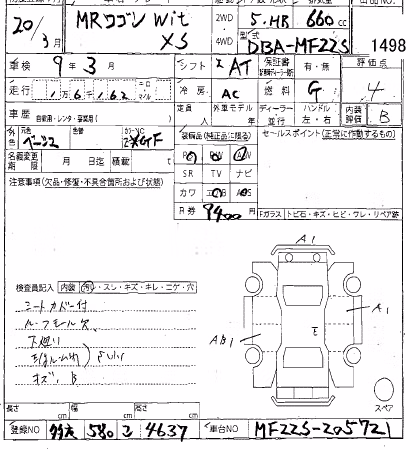 20/3月 MRワゴン Wit XS 2WD 4WD 5.HB 660cc
型式 DBA-MF22S 1498
車検 9年3月 シフト AT 保証書 有・無 評価点
走行 1万6千162 冷房 AC 燃料 G 4
車歴 自家用・レンタ・事業用( ) 定員 人 外車モデル 年 ディーラー 並行 ハンドル 左・右 内装評価 B
元色 ベージュ 色替 カラーNO ZYF 装備品(純正品に限る) セールスポイント(正常に作動するもの)
名義変更期限 月 日迄 積載 t
注意事項(欠品・修復・不具合箇所および状態) SR TV ナビ
カワ エアB ABS
R券 9400 円 Fガラス トビ石・キズ・ヒビ・ワレ・リペア跡
A1
検査員記入 内装 汚・スレ・キズ・キレ・コゲ・穴
シートカバー付 A1
ルーフモール欠 AB1 E
下廻り
キズ、B
スペア
長さ cm 幅 cm 高さ cm
登録NO 580 コ 4637 車台NO MF22S-205721